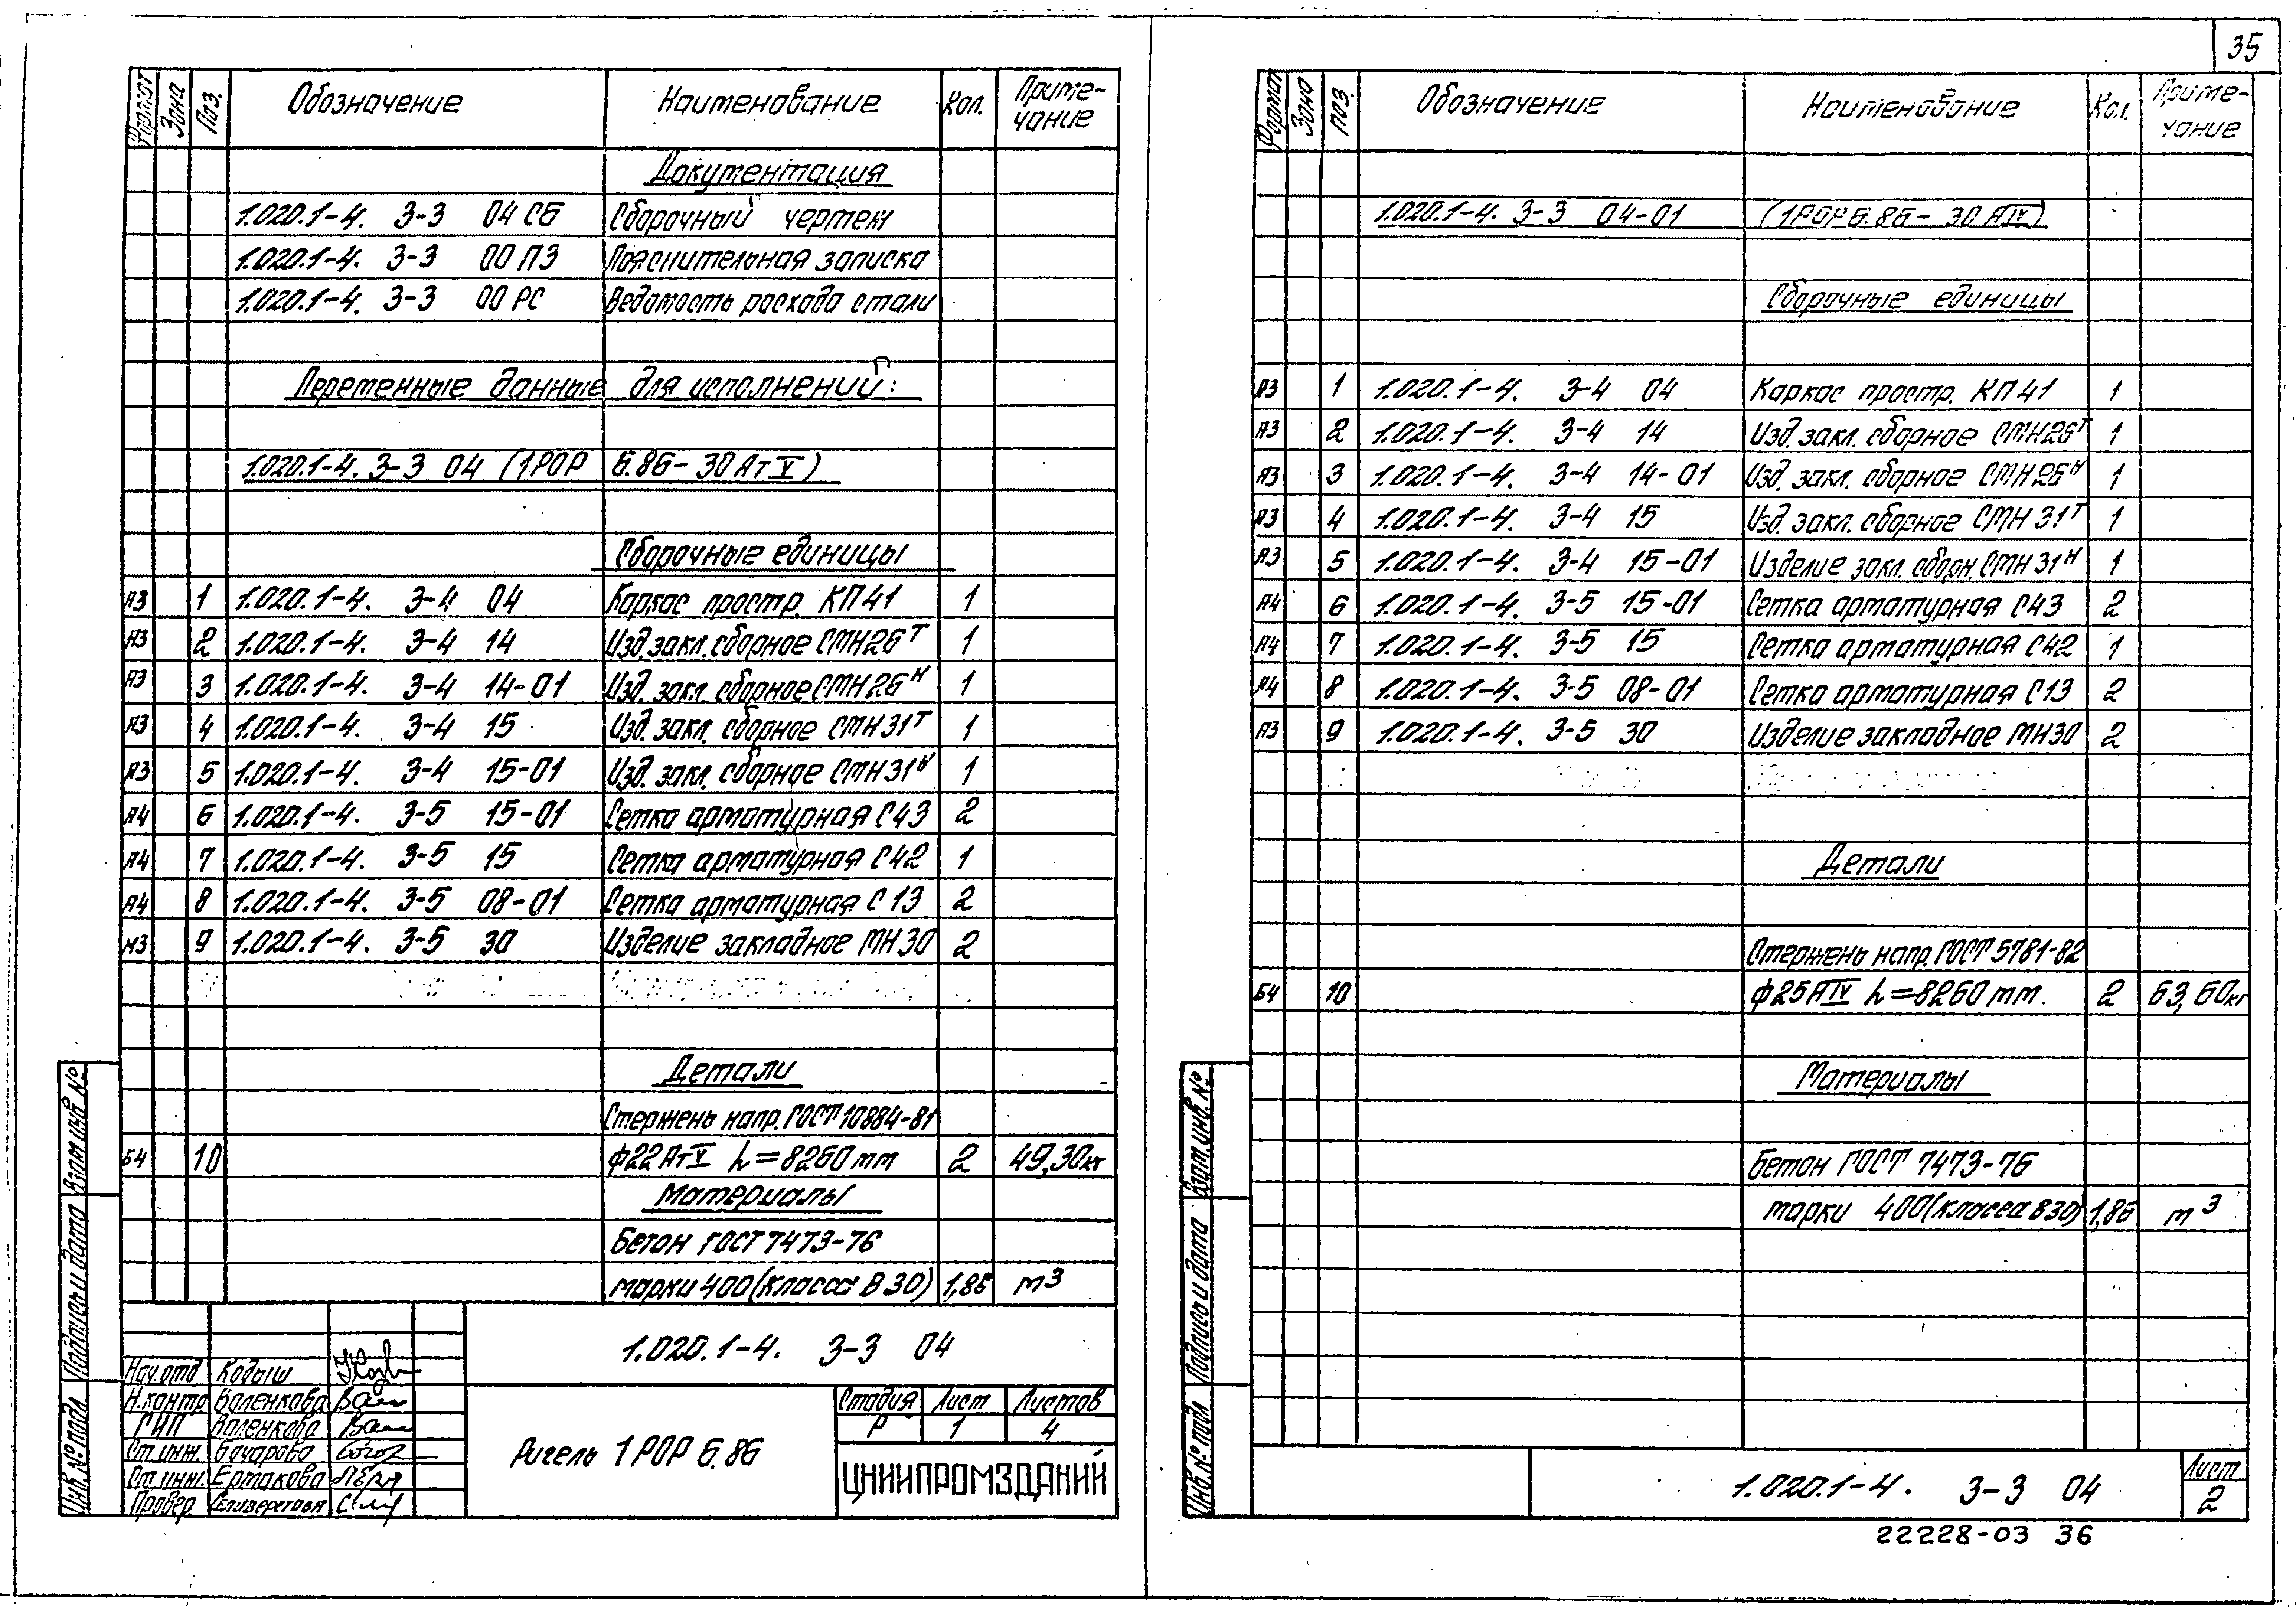 35
Формат Зона Поз. Обозначение Наименование Кол. Приме-чание
Документация
1.020.1-4. 3-3 04 СБ Сборочный чертеж
1.020.1-4. 3-3 00 ПЗ Пояснительная записка
1.020.1-4. 3-3 00 РС Ведомость расхода стали
Переменные данные для исполнений:
1.020.1-4. 3-3 04 (1РОР 6.86-30АтV)
Сборочные единицы
А3 1 1.020.1-4. 3-4 04 Каркас простр. КП41 1
А3 2 1.020.1-4. 3-4 14 Изд. закл. сборное СМН26т 1
А3 3 1.020.1-4. 3-4 14-01 Изд. закл. сборное СМН26н 1
А3 4 1.020.1-4. 3-4 15 Изд. закл. сборное СМН31т 1
А3 5 1.020.1-4. 3-4 15-01 Изд. закл. сборное СМН31н 1
А4 6 1.020.1-4. 3-5 15-01 Сетка арматурная С43 2
А4 7 1.020.1-4. 3-5 15 Сетка арматурная С42 1
А4 8 1.020.1-4. 3-5 08-01 Сетка арматурная С13 2
А3 9 1.020.1-4. 3-5 30 Изделие закладное МН30 2
Детали
Стержень напр. ГОСТ 10884-81
Б4 10 ф22АтV L=8260мм 2 49,30кг
Материалы
Бетон ГОСТ 7473-76
марки 400 (класса В30) 1,86 м3
1.020.1-4. 3-3 04
Нач.отд Кодыш
Н.контр Валенкова
ГИП Валенкова
Ст.инж. Бочарова
Ст.инж. Ермакова
Провер.
Ригель 1РОР 6.86
Стадия Лист Листов
Р 1 4
ЦНИИПРОМЗДАНИЙ
Инв.№ подл Подпись и дата Взам.инв.№
Формат Зона Поз. Обозначение Наименование Кол. Приме-чание
1.020.1-4. 3-3 04-01 (1РОР6.86-30АIV)
Сборочные единицы
А3 1 1.020.1-4. 3-4 04 Каркас простр. КП41 1
А3 2 1.020.1-4. 3-4 14 Изд. закл. сборное СМН26т 1
А3 3 1.020.1-4. 3-4 14-01 Изд. закл. сборное СМН26н 1
А3 4 1.020.1-4. 3-4 15 Изд. закл. сборное СМН31т 1
А3 5 1.020.1-4. 3-4 15-01 Изделие закл. сборн. СМН31н 1
А4 6 1.020.1-4. 3-5 15-01 Сетка арматурная С43 2
А4 7 1.020.1-4. 3-5 15 Сетка арматурная С42 1
А4 8 1.020.1-4. 3-5 08-01 Сетка арматурная С13 2
А3 9 1.020.1-4. 3-5 30 Изделие закладное МН30 2
Детали
Стержень напр. ГОСТ 5781-82
Б4 10 ф25АIV L=8260мм. 2 63,60кг
Материалы
Бетон ГОСТ 7473-76
марки 400 (класса В30) 1,86 м3
Инв.№ подл Подпись и дата Взам.инв.№
1.020.1-4. 3-3 04
Лист
2
22228-03 36